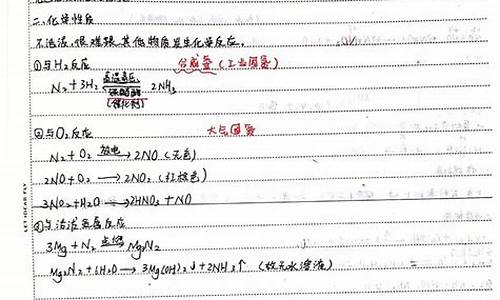 二.化学性质
不活泼,很难跟其他物质发生化学反应.
①与H₂反应 合成氨(工业固氮)
N₂+3H₂ 高温高压 2NH₃
(催化剂)
②与O₂反应 大气固氮
N₂+O₂ 放电→ 2NO(无色)
2NO+O₂ → 2NO₂(红棕色)
3NO₂+H₂O → 2HNO₃+NO
③与活泼金属反应
3Mg+N₂ 点燃→ Mg₃N₂
Mg₃N₂+6H₂O → 3Mg(OH)₂↓+2NH₃↑(故无水溶液)